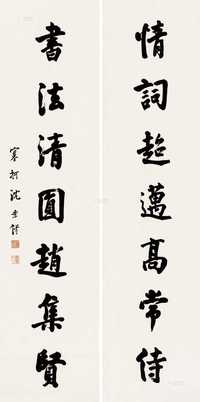 情詞超邁高常侍
書法清圓趙集賢
寒柯沈